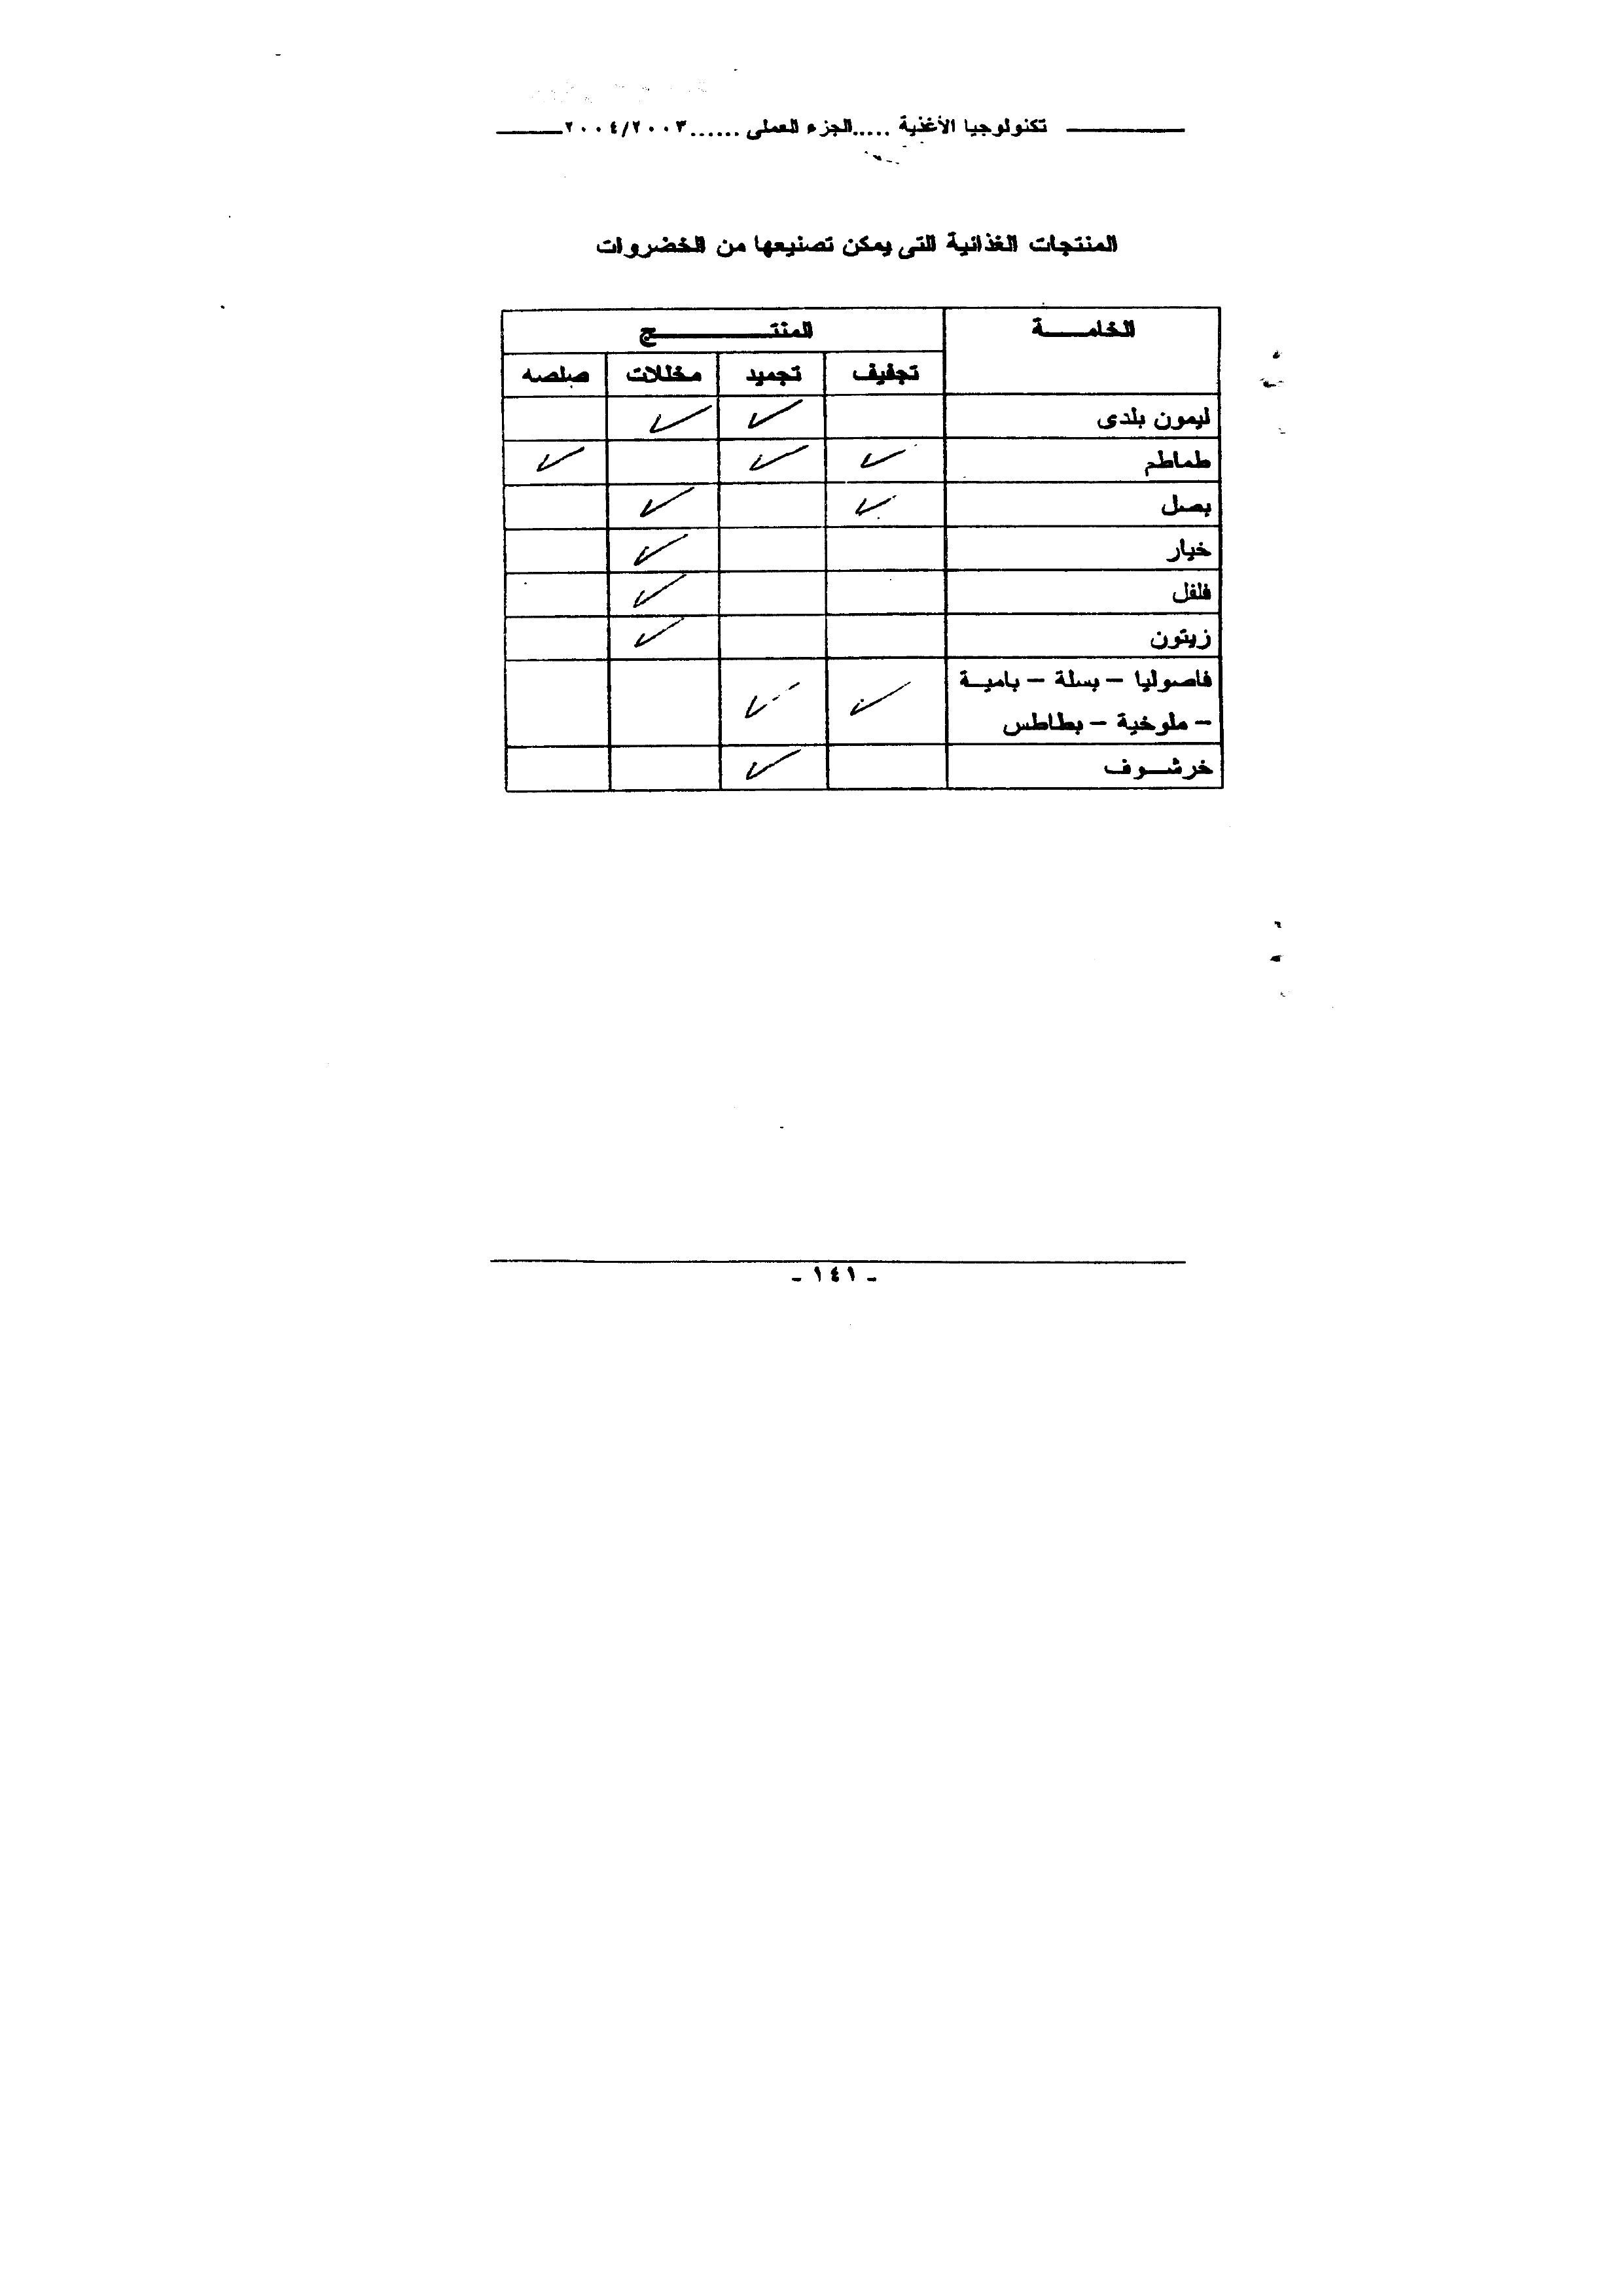 تكنولوجيا الأغذية .....الجزء العملى ......٢٠٠٤/٢٠٠٣
المنتجات الغذائية التى يمكن تصنيعها من الخضروات
الخامـــة المنتـــــــــج
تجفيف تجميد مخللات صلصه
ليمون بلدى ✓ ✓
طماطم ✓ ✓ ✓
بصل ✓ ✓
خيار ✓
فلفل ✓
زيتون ✓
فاصوليا – بسلة – باميـة ✓ ✓
– ملوخية – بطاطس
خرشـــوف ✓
- ١٤١ -